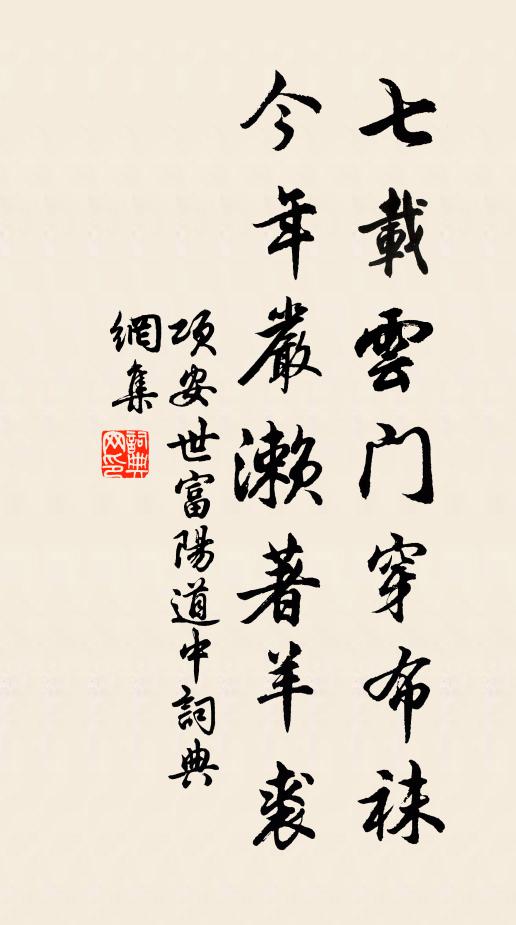 七載雲門穿布袜
今年嚴瀨著羊裘
項安世富陽道中詞典
網集
詞典
网印